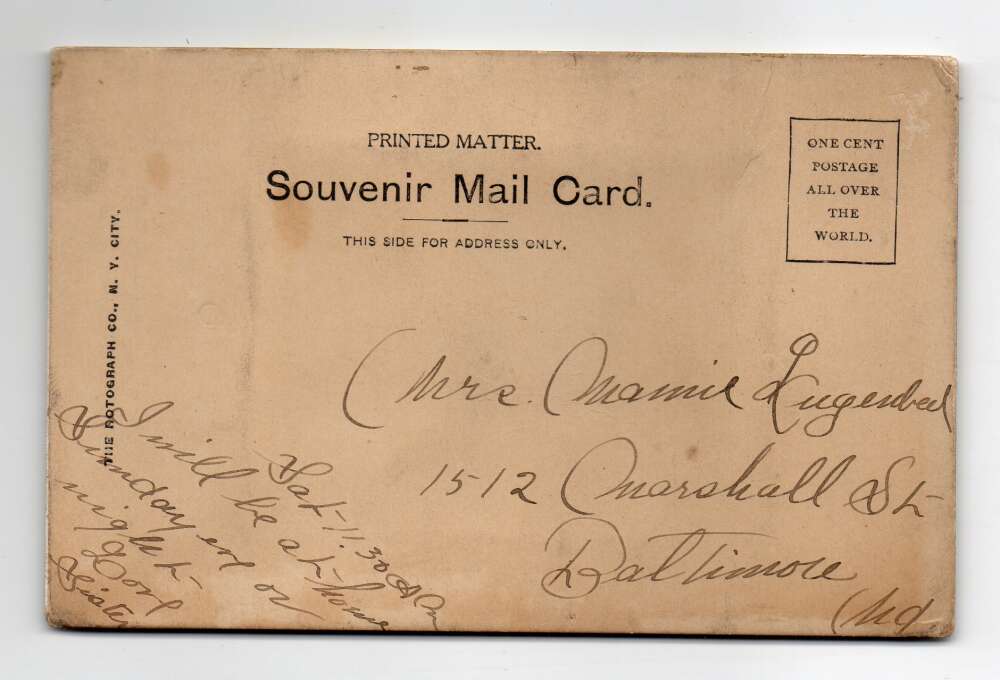 PRINTED MATTER.
Souvenir Mail Card.
THIS SIDE FOR ADDRESS ONLY.
ONE CENT
POSTAGE
ALL OVER
THE
WORLD.
THE ROTOGRAPH CO., N. Y. CITY.
Mrs. Mamie Lugenbeel
1512 Marshall St
Baltimore
Md.
Sat 11.30 AM
I will be at home
Sunday or
night
Sister